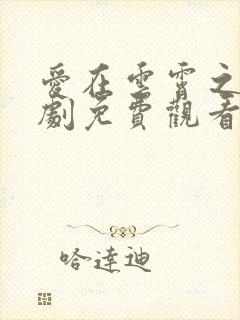 愛在雲霄之
劇免費觀看
哈達迪